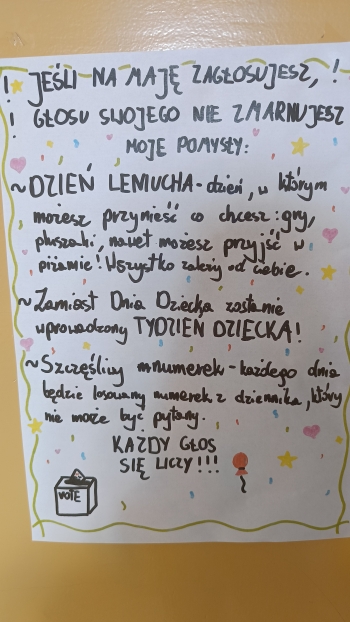 ! JEŚLI NA MAJĘ ZAGŁOSUJESZ, !
! GŁOSU SWOJEGO NIE ZMARNUJESZ
MOJE POMYSŁY:
~DZIEŃ LEMUCHA - dzień, w którym
możesz przynieść co chcesz: gry,
pluszaki, nawet możesz przyjść w
piżamie! Wszystko zależy od ciebie.
~Zamiast Dnia Dziecka zostanie
wprowadzony TYDZIEŃ DZIECKA!
~Szczęśliwy mnumerek - każdego dnia
będzie losowany numerek z dziennika, który
nie może być pytany.
KAŻDY GŁOS
SIĘ LICZY!!!
VOTE